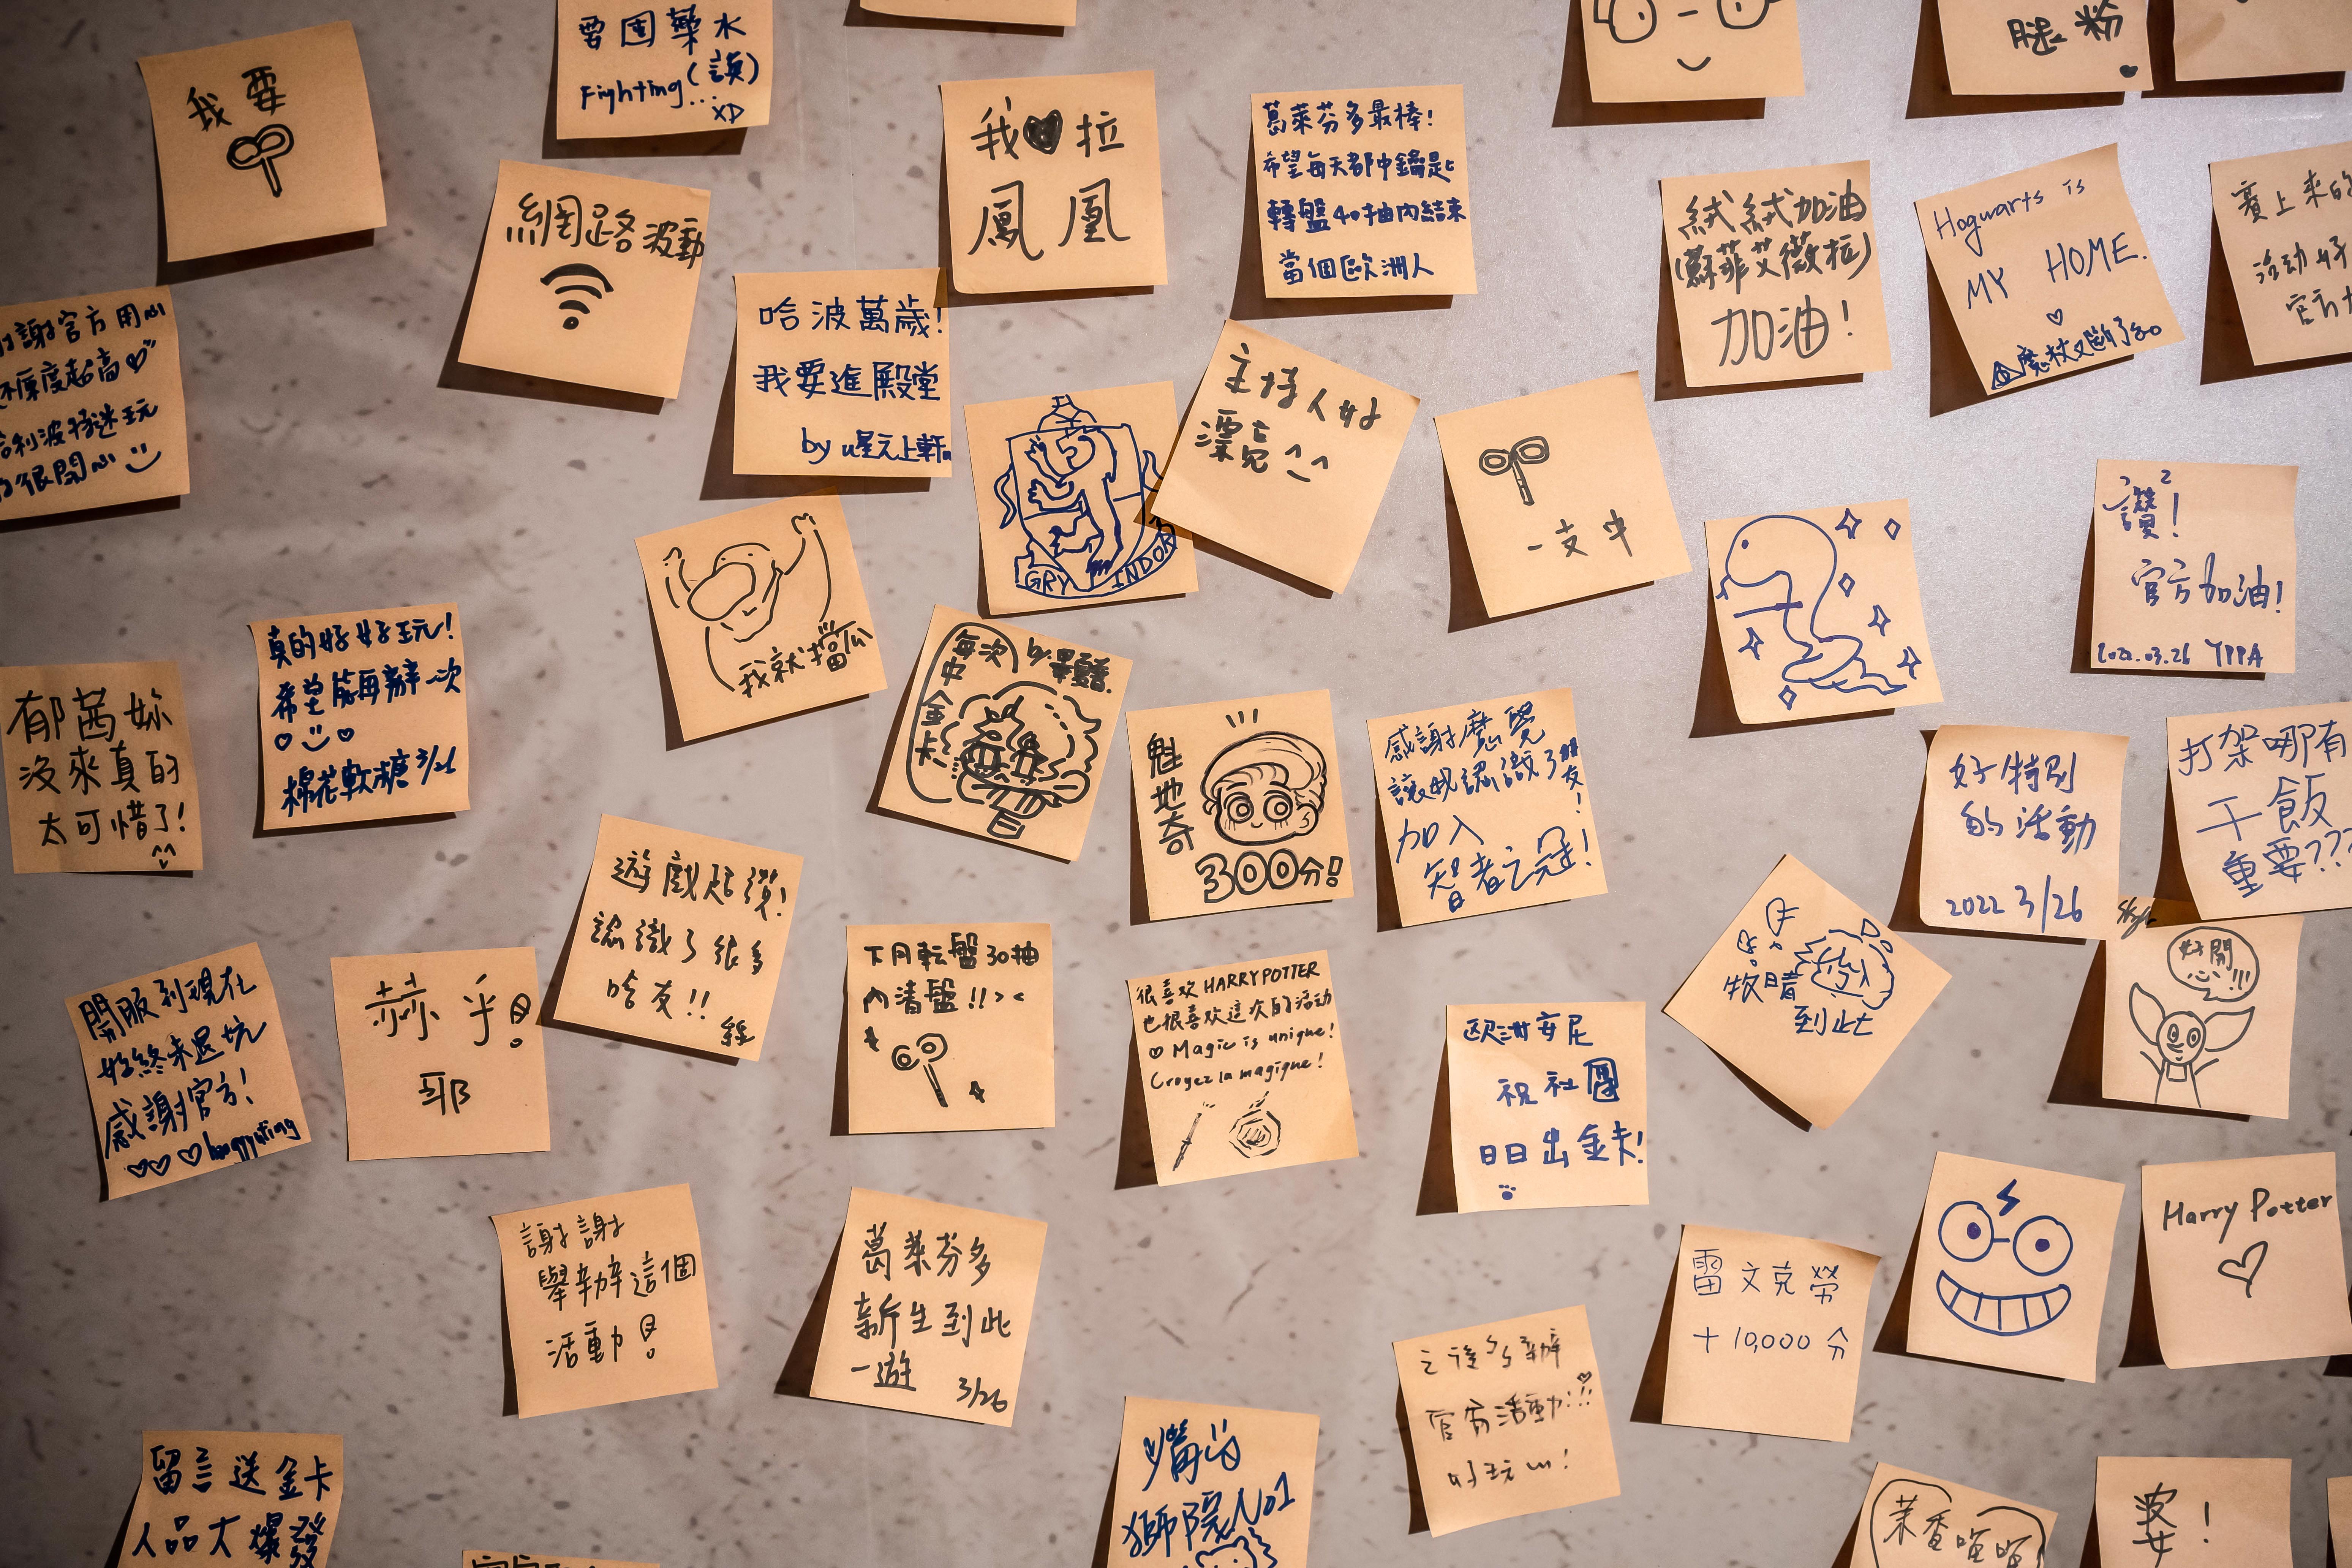 我要
要固藥水
Fighting(誤)
...XD
我 拉
鳳凰
葛萊芬多最棒!
希望每天都中鑰匙
轉盤40抽內結束
當個歐洲人
腿粉
網路波動
絨絨加油
(蘇菲艾薇拉)
加油!
Hogwarts is
MY HOME.
魔杖又斷了
賽上来的
活动好
官方
謝官方用心
原度超高
哈利波特迷玩
很開心
哈波萬歲!
我要進殿堂
by 星元上軒
GRY INDOR
主持人好
漂亮^_^
一支中
讚!
官方加油!
2022.03.26 YPPA
我就擋
每次
中
金
卡
by
真的好好玩!
希望能再辦一次
棉花軟糖 3/26
郁茜妳
沒來真的
太可惜了!
^^
魁地奇
300分!
感謝魔覺
讓我認識了朋友!
加入
智者之冠!
好特別
的活動
2022 3/26
打架哪有
干飯
重要???
遊戲超讚!
認識了很多
哈友!!
開服到現在
始終未退坑
感謝官方!
赫乎!
耶
下月転盤30抽
內清盤!!><
很喜欢HARRY POTTER
也很喜欢这次的活动
Magic is unique!
Croyez la magique!
歐洲安尼
祝社團
日日出金卡!
牧晴
到此
好開
心!!!
謝謝
舉辦這個
活動!
葛萊芬多
新生到此
一遊 3/26
雷文克勞
+10,000分
Harry Potter
之後多辦
官方活動!!!
好玩!
留言送金卡
人品大爆發
獅院No1
茉香喧喧
婆!